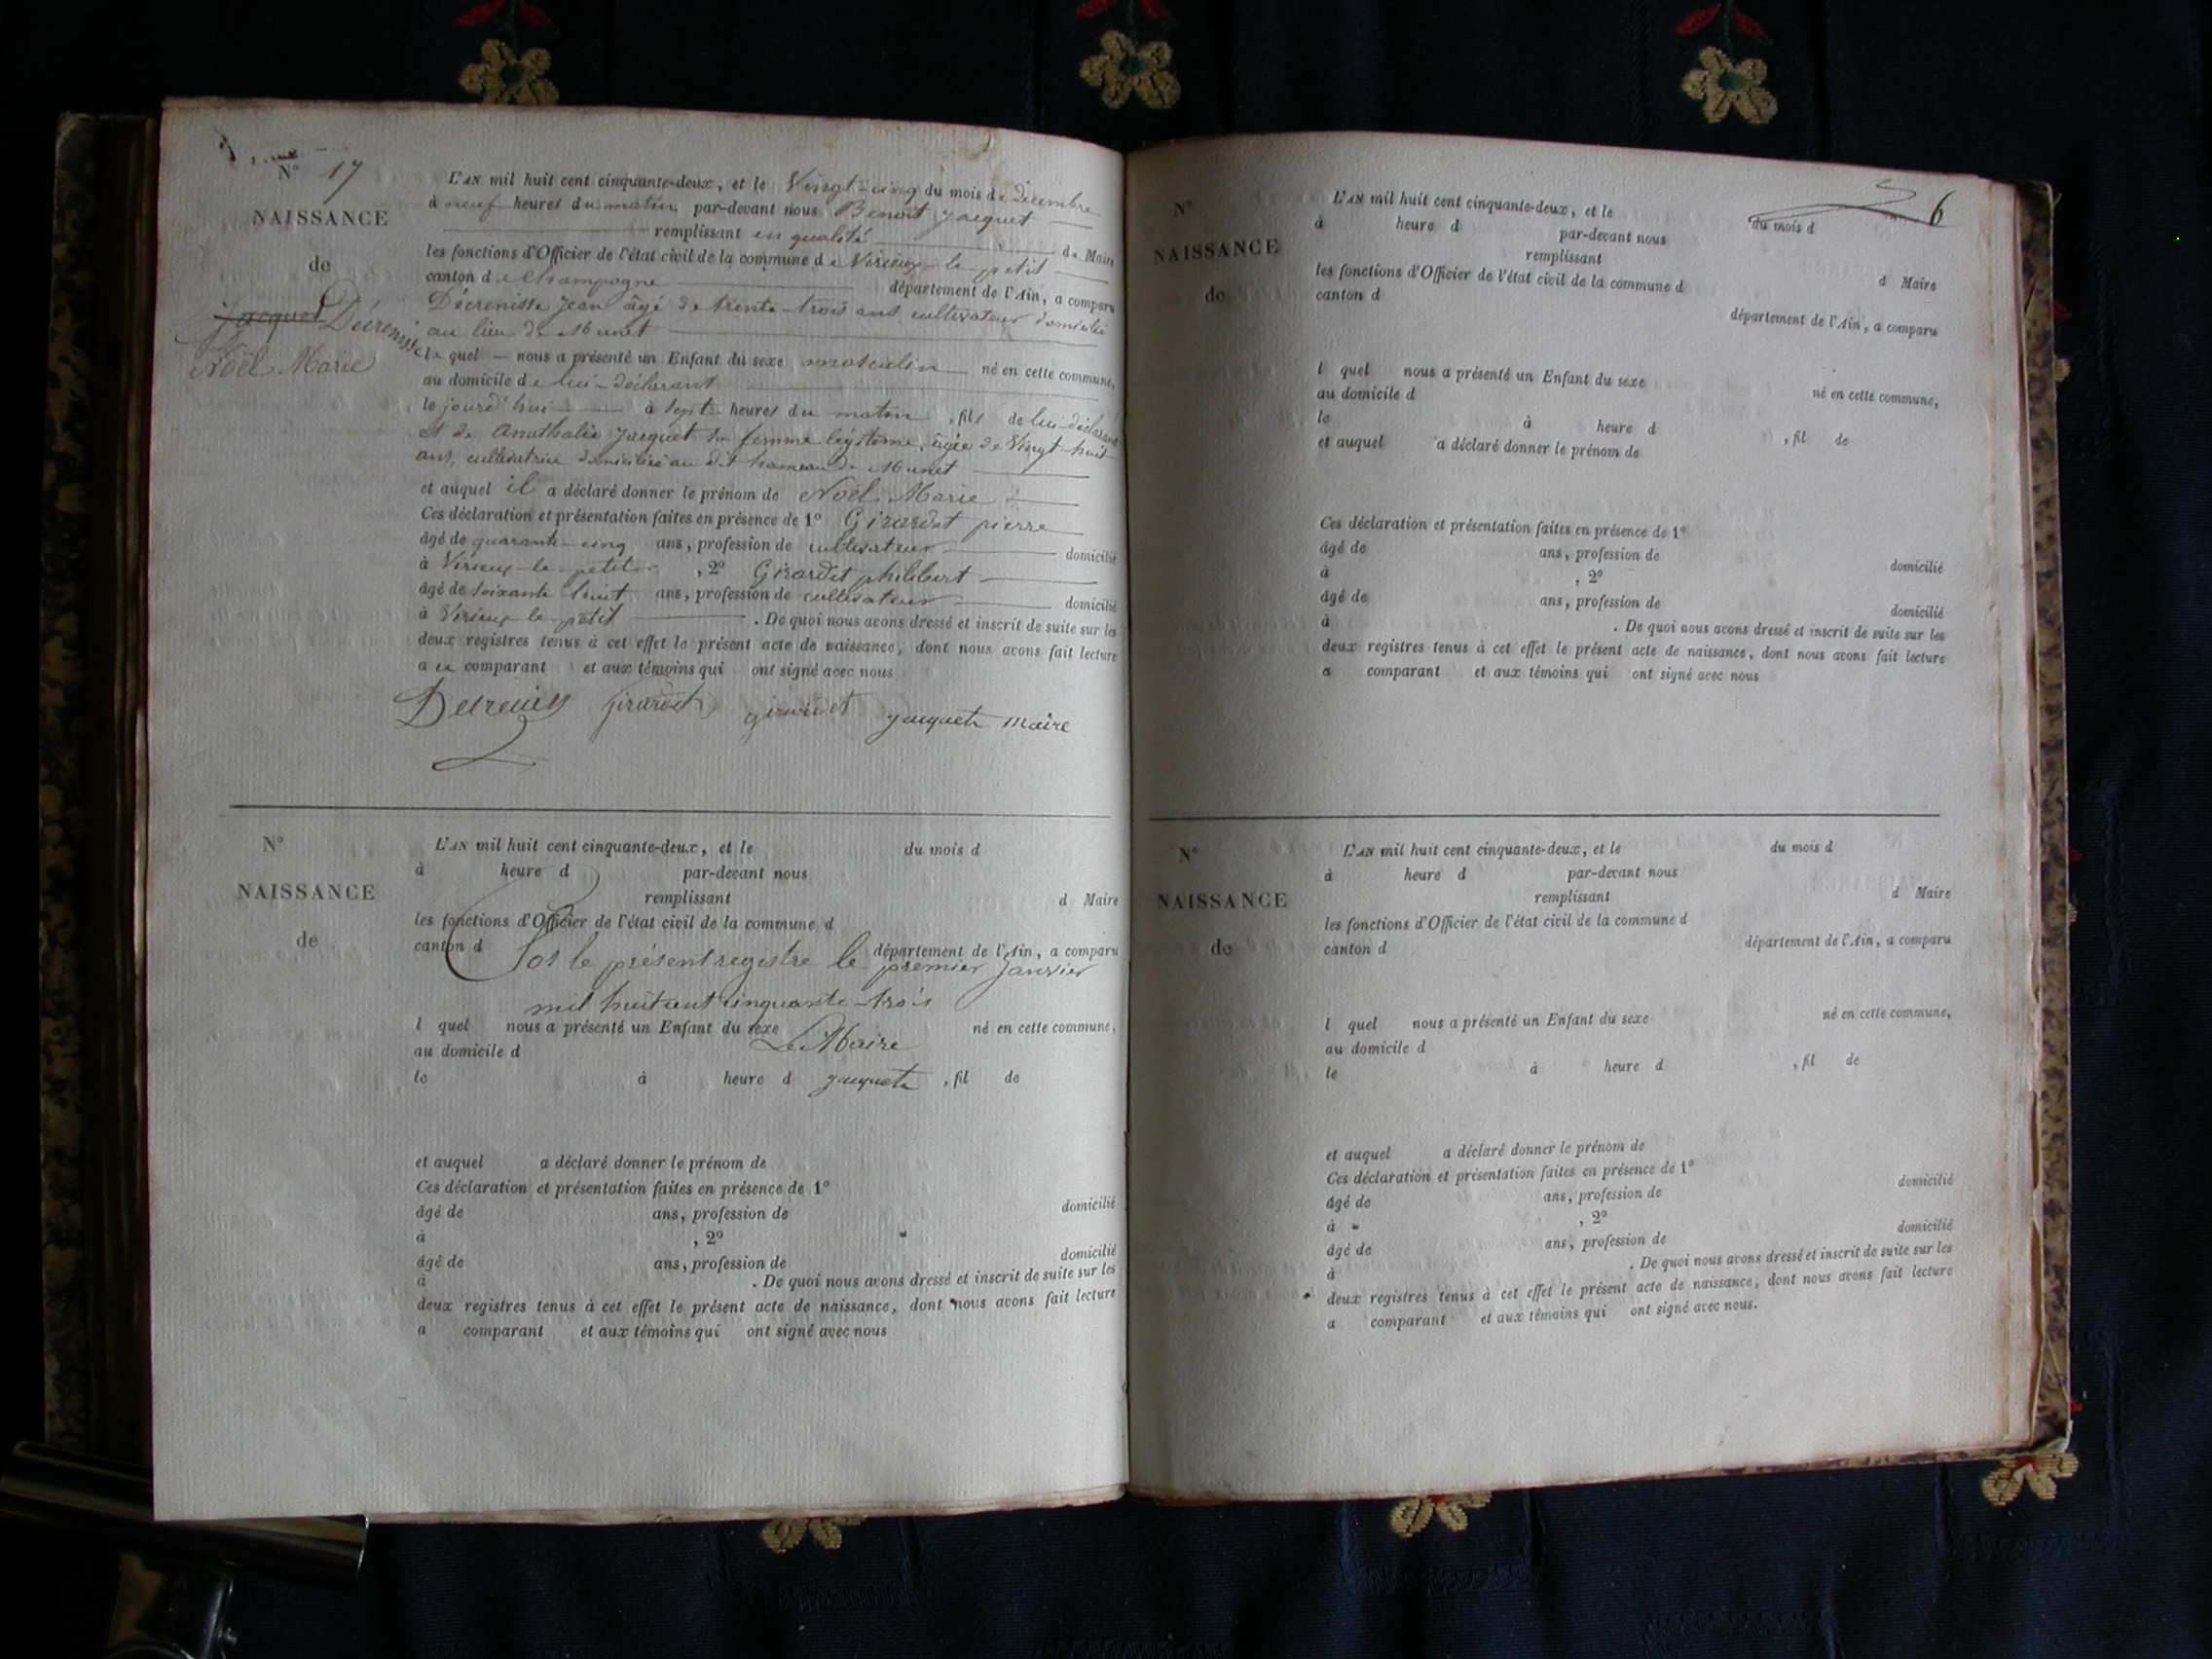 N° 17
NAISSANCE
de
Jacquet Décrenisse
Noël Marie
L'AN mil huit cent cinquante-deux, et le Vingt-cinq du mois de Décembre
à neuf heures du matin par-devant nous Benoît Jacquet
remplissant en qualité de Maire
les fonctions d'Officier de l'état civil de la commune de Virieux-le-petit
canton de Champagne département de l'Ain, a comparu
Décrenisse Jean âgé de trente-trois ans cultivateur domicilié
au lieu de Munet
le quel nous a présenté un Enfant du sexe masculin né en cette commune,
au domicile de lui-déclarant
le jourd'hui à sept heures du matin, fils de lui-déclarant
et de Anathalie Jacquet sa femme légitime, âgée de Vingt-huit
ans, cultivatrice domiciliée au dit hameau de Munet
et auquel il a déclaré donner le prénom de Noël Marie
Ces déclaration et présentation faites en présence de 1° Girardet pierre
âgé de quarante-cinq ans, profession de cultivateur domicilié
à Virieux-le-petit, 2° Girardet philibert
âgé de soixante huit ans, profession de cultivateur domicilié
à Virieux-le-petit. De quoi nous avons dressé et inscrit de suite sur les
deux registres tenus à cet effet le présent acte de naissance, dont nous avons fait lecture
a comparant et aux témoins qui ont signé avec nous
girardet jacquet maire
N°
NAISSANCE
de
L'AN mil huit cent cinquante-deux, et le du mois d
à heure d par-devant nous
remplissant d Maire
les fonctions d'Officier de l'état civil de la commune d
canton d département de l'Ain, a comparu
Clos le présent registre le premier Janvier
mil huit cent cinquante-trois
l quel nous a présenté un Enfant du sexe né en cette commune,
Le Maire
au domicile d
le à heure d , fil de
jacquet
et auquel a déclaré donner le prénom de
Ces déclaration et présentation faites en présence de 1°
âgé de ans, profession de domicilié
à , 2°
âgé de ans, profession de domicilié
à . De quoi nous avons dressé et inscrit de suite sur les
deux registres tenus à cet effet le présent acte de naissance, dont nous avons fait lecture
a comparant et aux témoins qui ont signé avec nous
6
N°
NAISSANCE
de
L'AN mil huit cent cinquante-deux, et le du mois d
à heure d par-devant nous
remplissant d Maire
les fonctions d'Officier de l'état civil de la commune d
canton d département de l'Ain, a comparu
l quel nous a présenté un Enfant du sexe né en cette commune,
au domicile d
le à heure d , fil de
et auquel a déclaré donner le prénom de
Ces déclaration et présentation faites en présence de 1°
âgé de ans, profession de domicilié
à , 2°
âgé de ans, profession de domicilié
à . De quoi nous avons dressé et inscrit de suite sur les
deux registres tenus à cet effet le présent acte de naissance, dont nous avons fait lecture
a comparant et aux témoins qui ont signé avec nous
N°
NAISSANCE
de
L'AN mil huit cent cinquante-deux, et le du mois d
à heure d par-devant nous
remplissant d Maire
les fonctions d'Officier de l'état civil de la commune d
canton d département de l'Ain, a comparu
l quel nous a présenté un Enfant du sexe né en cette commune,
au domicile d
le à heure d , fil de
et auquel a déclaré donner le prénom de
Ces déclaration et présentation faites en présence de 1°
âgé de ans, profession de domicilié
à , 2°
âgé de ans, profession de domicilié
à . De quoi nous avons dressé et inscrit de suite sur les
deux registres tenus à cet effet le présent acte de naissance, dont nous avons fait lecture
a comparant et aux témoins qui ont signé avec nous.